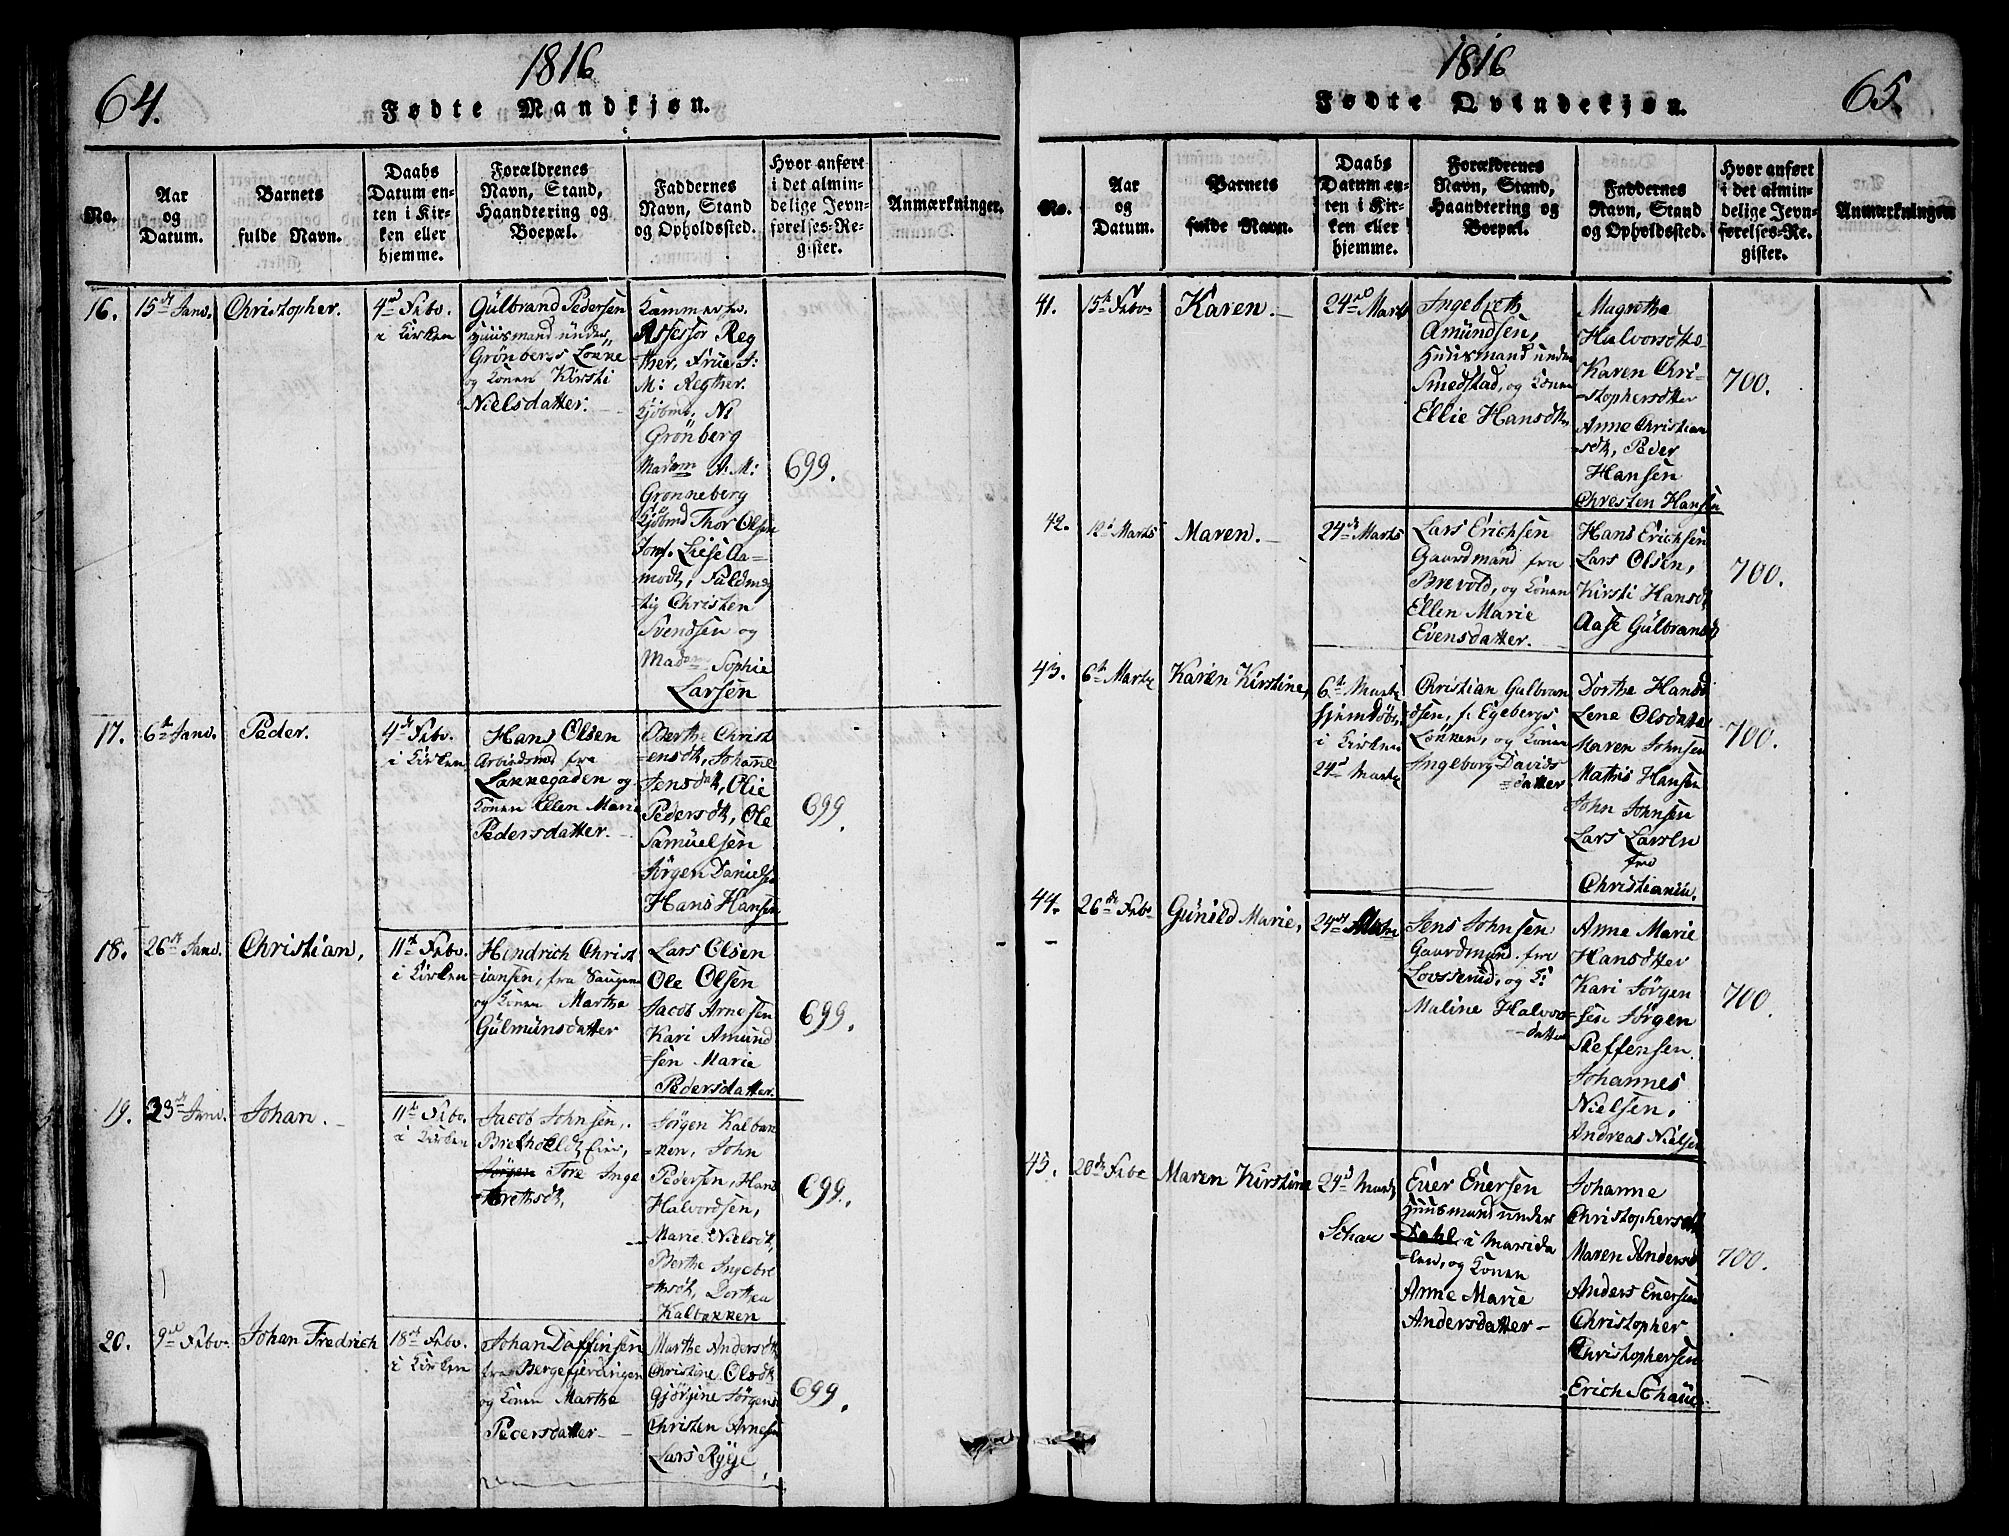 64.
1816
Fødte Mandkjøn.
No.
Aar
og
Datum.
Barnets
fulde Navn.
Daabs
Datum en-
ten i Kir-
ken eller
hjemme.
Forældrenes
Navn, Stand,
Haandtering og
Boepæl.
Faddernes
Navn, Stand
og Opholdssted.
Hvor anført
i det almin-
delige Jevn-
førelses-Re-
gister.
Anmærkninger.
16.
15de Janv.
Christopher.
4de Febv.
i Kirken
Gulbrand Pedersen
Huusmand under
Grønbergs Løkke
og Konen Kirsti
Nielsdatter.
Kammerhr.
Assessor Reg
ther, Frue
M: Regther.
Kjøbmd. Ni
Grønberg
Madam A. M:
Grønneberg
Kjøbmd Thor Olsen
Jomf. Liese Aa-
modt, Fuldmæg
tig Christen
Svendsen og
Madam Sophie
Larsen
699.
17.
6te Janv.
Peder.
4de Febv.
i Kirken
Hans Olsen
Arbeidsmd fra
Lakkegaden og
Konen Ellen Marie
Pedersdatter.
Berthe Christ
ensdt, Johanne
Jensdt, Olie
Pedersdt, Ole
Samuelsen
Jørgen Daniels
Hans Hansen
699.
18.
26de Janv.
Christian,
11te Febv.
i Kirken
Hendrich Christ
iansen, fra Saugene
og Konen Marthe
Gulmunsdatter
Lars Olsen
Ole Olsen
Jacob Arnesen
Kari Amund
=sen Marie
Pedersdatter.
699.
19.
23de Janv.
Johan.
11te Febv.
i Kirken
Jacob Johnsen,
Jørgen Tore Inge
brethsdt,
Jørgen Kalbak
ken, John
Pedersen, Hans
Halvordsen,
Marie Nielsdt,
Berthe Ingebre
thsdt, Dorthea
Kalbakken
699.
20.
9de Febv.
Johan Fredrich
18de Febv.
i Kirken
Johan Daffinsen
fra Bergefjerdingen
og Konen Marthe
Pedersdatter
Marthe Andersdt
Christine Olsdt
Gjørgine Jørgens
Christen Arnesen
Lars Ryge
699.
1816
65.
Fødte Qvindekjøn.
No.
Aar
og
Datum.
Barnets
fulde Navn.
Daabs
Datum en-
ten i Kir-
ken eller
hjemme.
Forældrenes
Navn, Stand,
Haandtering og
Boepæl.
Faddernes
Navn, Stand
og Opholdssted.
Hvor anført
i det almin-
delige Jevn-
førelses-Re-
gister.
Anmærkninger
41.
15te Febv
Karen.
24de Marts
Ingebreth
Amundsen,
Huusmand under
Smedstad, og Konen
Ellie Hansdt.
Magrethe
Halvorsdtte
Karen Chri-
=stophersdtter
Anne Christian
sdt, Peder
Hansen
Christen Hansen
700.
42.
12te Marts
Maren.
24de Marts
Lars Erichsen
Gaardmand fra
Brevold, og Konen
Ellen Marie
Evensdatter.
Hans Erichsen
Lars Olsen,
Kirsti Hansdt
Aase Gulbransd
700.
43.
6te Marts
Karen Kirstine,
6te Marts
Hjemdøbt,
i Kirken
24de Marts
Christian Gulbran
dsen, f. Egebergs
Løkken, og Konen
Ingeborg Davids
=datter
Dorthe Hansd
Lene Olsdatter
Maren Johnsen
Mathis Hansen
John Johnsen
Lars Larsen
fra
Christiania.
700.
44.
26de Febv
Gunild Marie,
24de Marts
Jens Johnsen
Gaardmand fra
Lovsserud, og K:
Maline Halvor
=datter
Anne Marie
Hansdtter
Kari Jørgen
=sen Jørgen
Steffensen
Johannes
Nielsen,
Andreas Nielsen
700.
45.
20de Febv
Maren Kirstine
24de Marts
Schar
Even Evensen
Huusmand under
Dahl i Marida
=len, og Konen
Anne Marie
Andersdatter
Johanne
Christophersdt
Maren Andersd
Anders Evensen
Christopher
Christophersen
Erich Schaue
700.